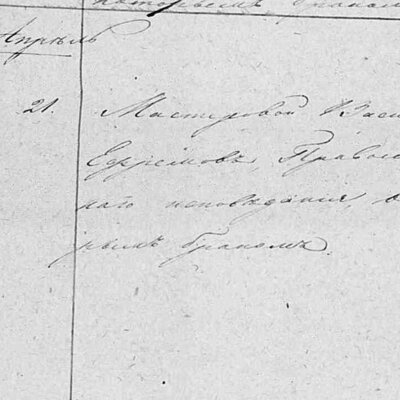 бракомъ
Апрѣль
21. Мастеровой Васи
Ефремовъ, Правос
наго исповѣданія, в
рымъ бракомъ.